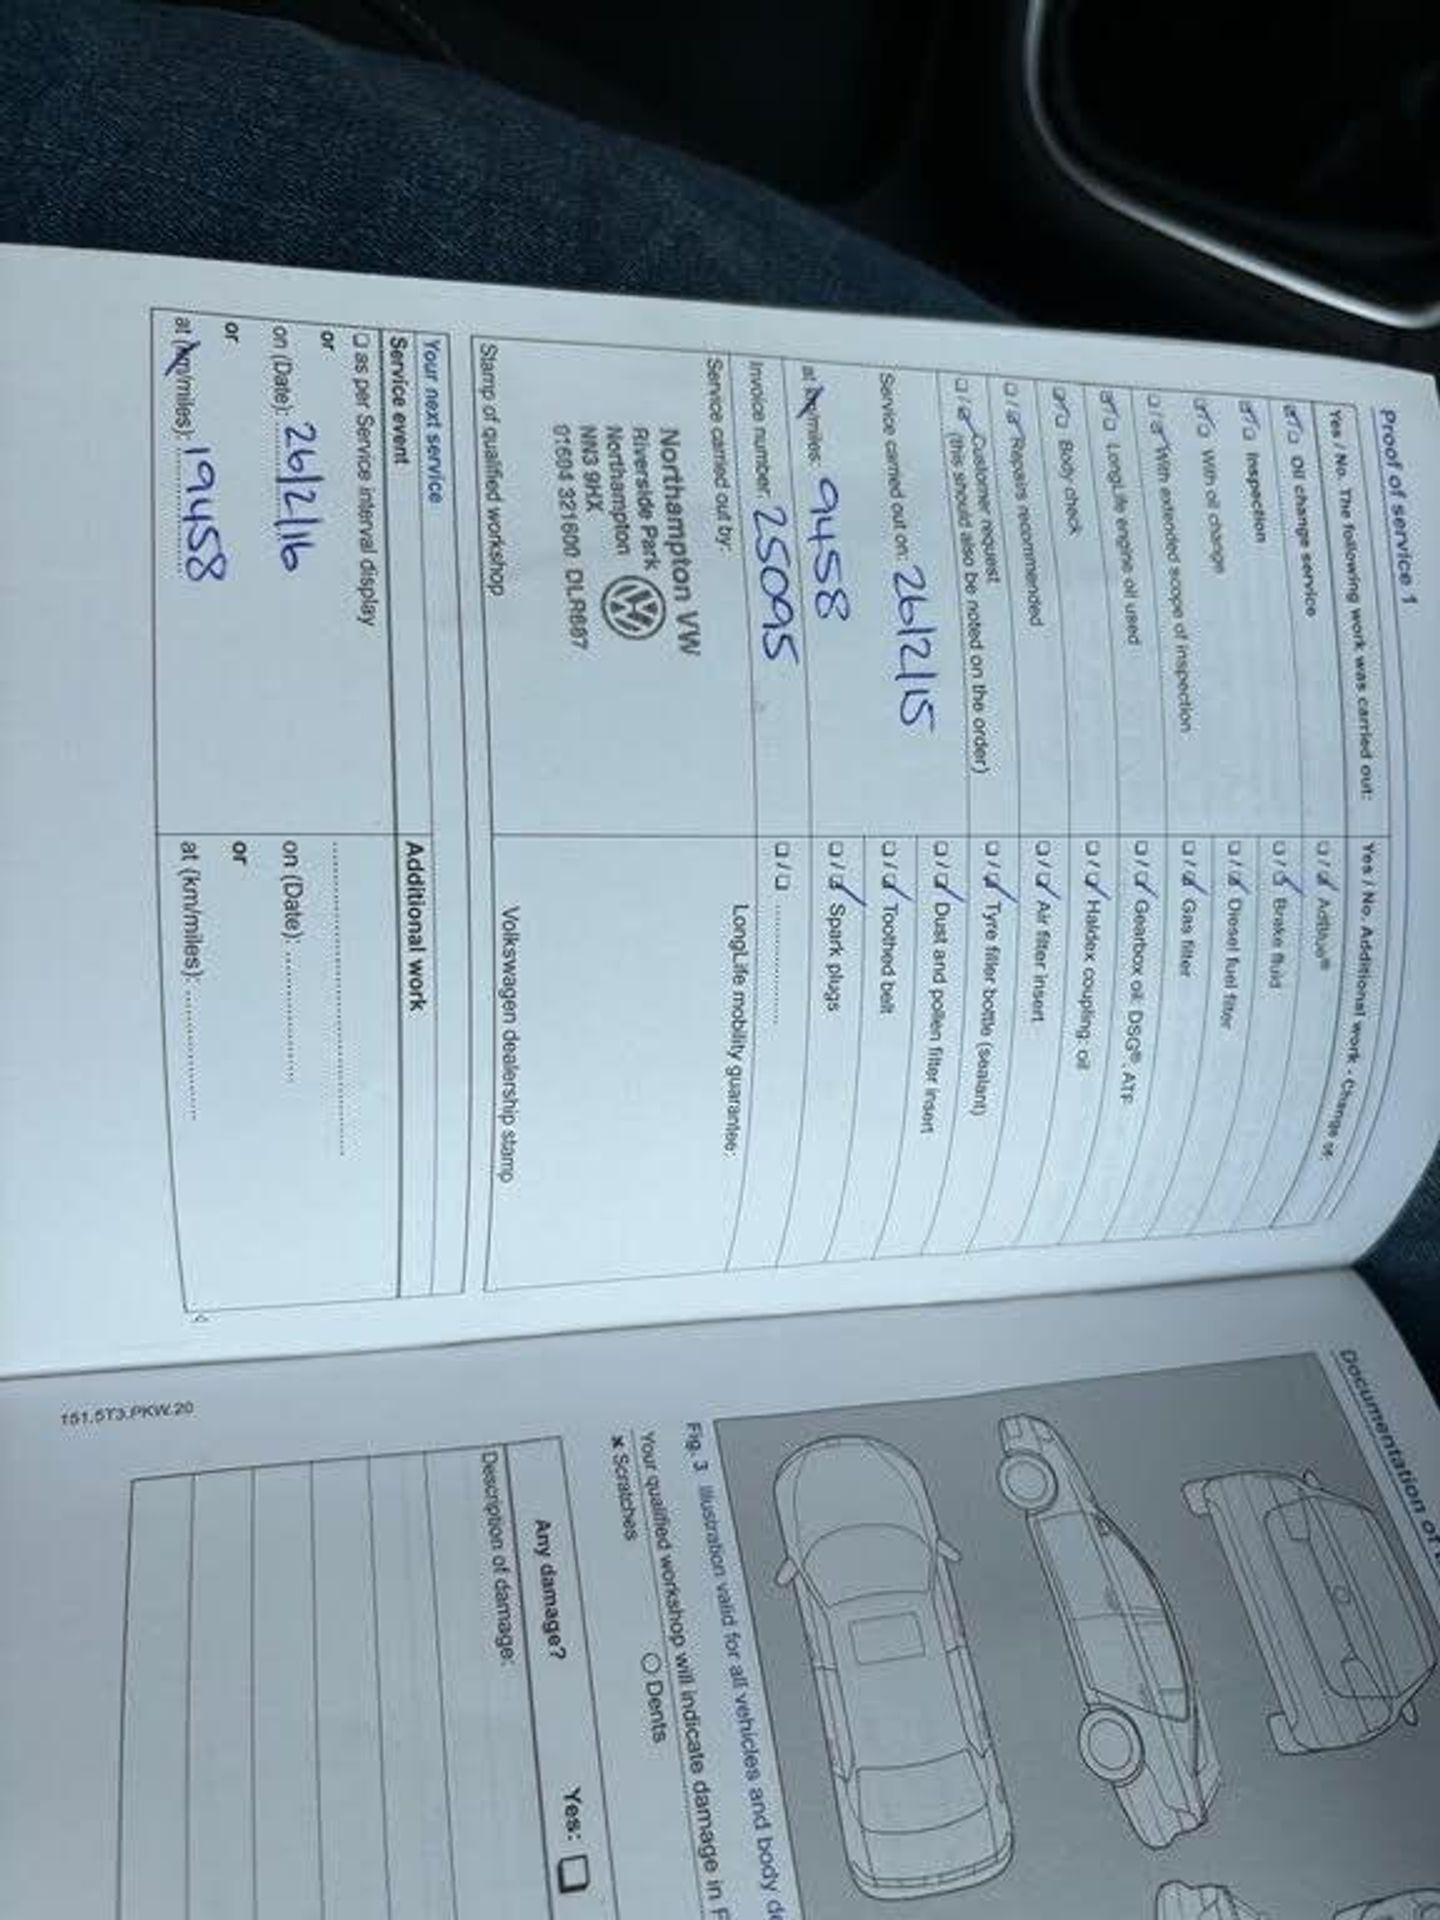 Proof of service 1
Yes / No. The following work was carried out:
Oil change service
Inspection
With oil change
With extended scope of inspection
LongLife engine oil used
Body check
Repairs recommended
Customer request
(this should also be noted on the order)
Service carried out on: 26/2/15
at km/miles: 9458
Invoice number: 25095
Service carried out by:
Northampton VW
Riverside Park
Northampton
NN3 9HX
01604 321600 DLR687
Stamp of qualified workshop
Yes / No. Additional work - Change of:
AdBlue®
Brake fluid
Diesel fuel filter
Gas filter
Gearbox oil: DSG®, ATF
Haldex coupling: oil
Air filter insert
Tyre filler bottle (sealant)
Dust and pollen filter insert
Toothed belt
Spark plugs
LongLife mobility guarantee:
Volkswagen dealership stamp
Your next service
Service event
as per Service interval display
or
on (Date): 26/2/16
or
at (km/miles): 19458
Additional work
on (Date):
or
at (km/miles):
Documentation of
Fig. 3 Illustration valid for all vehicles and body
Your qualified workshop will indicate damage in
x Scratches
O Dents
Any damage?
Yes:
Description of damage:
151.5T3.PKW.20